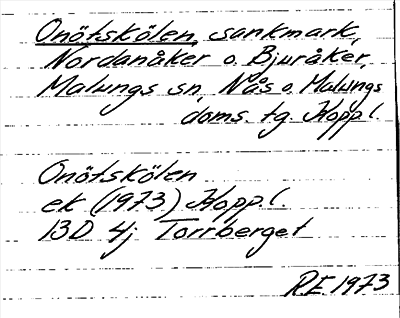 Onötskölen, sankmark,
Nordanåker o. Bjuråker,
Malungs sn, Nås o. Malungs
doms. tg. Koppl.
Onötskölen
ek (1973) Koppl.
13D 4j Torrberget
R.E. 1973